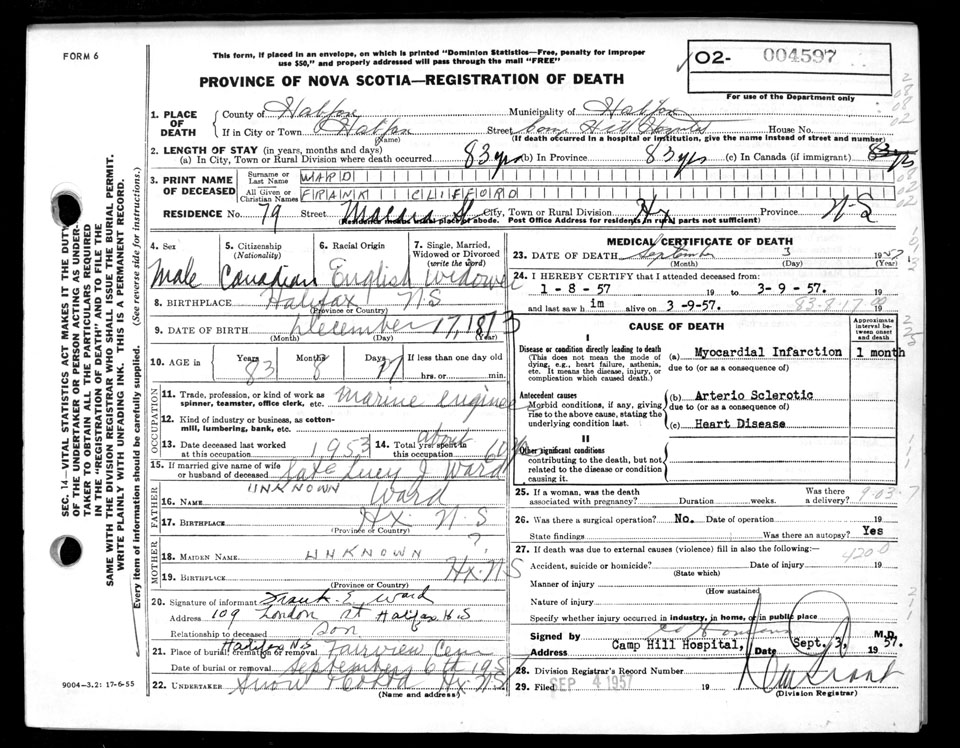 FORM 6
This form, if placed in an envelope, on which is printed "Dominion Statistics—Free, penalty for improper
use $50," and properly addressed will pass through the mail "FREE"
PROVINCE OF NOVA SCOTIA—REGISTRATION OF DEATH
02- 004597
For use of the Department only
1. PLACE OF DEATH
County of Halifax Municipality of Halifax
If in City or Town Halifax Street Camp Hill Hospital House No.
(Name) (If death occurred in a hospital or institution, give the name instead of street and number)
2. LENGTH OF STAY (in years, months and days)
(a) In City, Town or Rural Division where death occurred 83 yrs (b) In Province 83 yrs (c) In Canada (if immigrant) 83 yrs
3. PRINT NAME OF DECEASED
Surname or Last Name WARD
All Given or Christian Names FRANK CLIFFORD
RESIDENCE No. 79 Street City, Town or Rural Division Hx Province N-S
(Residence means usual place of abode. Post Office Address for residents in rural parts not sufficient)
4. Sex Male
5. Citizenship (Nationality) Canadian
6. Racial Origin English
7. Single, Married, Widowed or Divorced (write the word) Widower
8. BIRTHPLACE Halifax N S
(Province or Country)
9. DATE OF BIRTH December 17, 1873
(Month) (Day) (Year)
10. AGE in Years 83 Months 8 Days 17 If less than one day old
hrs. or min.
OCCUPATION
11. Trade, profession, or kind of work as spinner, teamster, office clerk, etc. Marine Engineer
12. Kind of industry or business, as cotton-mill, lumbering, bank, etc.
13. Date deceased last worked at this occupation 1953 14. Total yrs. spent in this occupation about 60
15. If married give name of wife or husband of deceased Late Lucy J Ward
FATHER
16. NAME UNKNOWN Ward
17. BIRTHPLACE Hx. N-S
(Province or Country)
MOTHER
18. MAIDEN NAME UNKNOWN ?
19. BIRTHPLACE Hx. N S
(Province or Country)
20. Signature of informant Frank E Ward
Address 109 London St Halifax N S
Relationship to deceased Son
21. Place of burial, cremation or removal Halifax N.S Fairview Cem
Date of burial or removal September 6th 195
22. UNDERTAKER Snow & Co Ltd Hx. N S
(Name and address)
MEDICAL CERTIFICATE OF DEATH
23. DATE OF DEATH September 3 1957
(Month) (Day) (Year)
24. I HEREBY CERTIFY that I attended deceased from:
1 - 8 - 57 19 to 3- 9 - 57. 19
and last saw h im alive on 3 -9-57. 19
83-8-17
CAUSE OF DEATH
Approximate interval between onset and death
I
Disease or condition directly leading to death
(This does not mean the mode of dying, e.g., heart failure, asthenia, etc. It means the disease, injury, or complication which caused death.)
(a) Myocardial Infarction 1 month
due to (or as a consequence of)
Antecedent causes
Morbid conditions, if any, giving rise to the above cause, stating the underlying condition last.
(b) Arterio Sclerotic
due to (or as a consequence of)
(c) Heart Disease
II
Other significant conditions
contributing to the death, but not related to the disease or condition causing it.
25. If a woman, was the death associated with pregnancy? Duration weeks. Was there a delivery?
26. Was there a surgical operation? No. Date of operation 19
State findings Was there an autopsy? Yes
27. If death was due to external causes (violence) fill in also the following:—
420-0
Accident, suicide or homicide? Date of injury 19
(State which)
Manner of injury
(How sustained)
Nature of injury
Specify whether injury occurred in industry, in home, or in public place
Signed by M.D.
Address Camp Hill Hospital, Date Sept. 3, 1957.
28. Division Registrar's Record Number
29. Filed SEP 4 1957 19
(Division Registrar)
SEC. 14—VITAL STATISTICS ACT MAKES IT THE DUTY
OF THE UNDERTAKER OR PERSON ACTING AS UNDER-
TAKER TO OBTAIN ALL THE PARTICULARS REQUIRED
IN THE "REGISTRATION OF DEATH" AND TO FILE THE
SAME WITH THE DIVISION REGISTRAR WHO SHALL ISSUE THE BURIAL PERMIT.
WRITE PLAINLY WITH UNFADING INK. THIS IS A PERMANENT RECORD.
Every item of information should be carefully supplied. (See reverse side for instructions.)
9004—3.2: 17-6-55